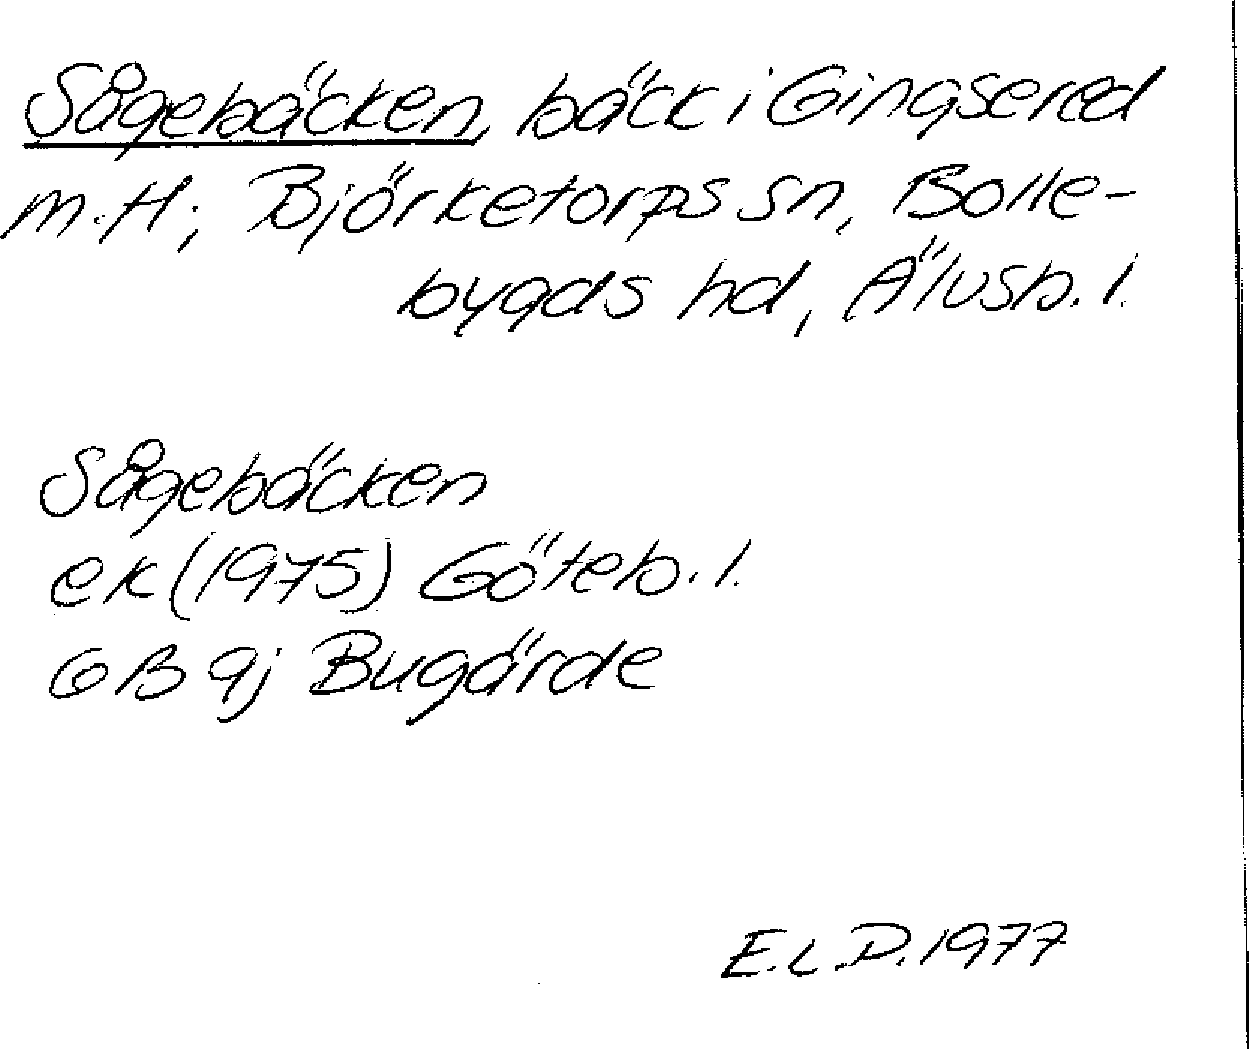 Sågebäcken, bäck i Gingsered
m.fl.; Björketorps sn, Bolle-
bygds hd, Älvsb. l.
Sågebäcken
ek (1975) Göteb. l.
GB 9j Bugärde
E.L.D. 1977